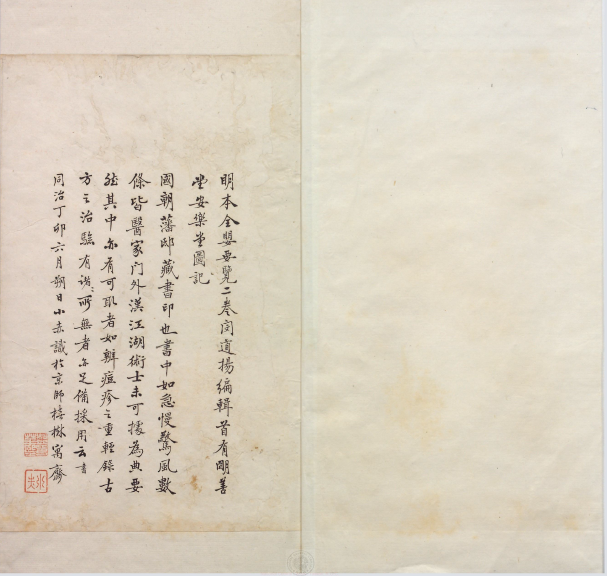 明本全嬰要覽二卷閔道揚編輯首有明善
堂安樂堂圖記
國朝藩邸藏書印也書中如急慢驚風數
條皆醫家門外漢江湖術士未可據為典要
然其中亦有可取者如辨痘疹之重輕錄古
方之治驗有諸所無者亦足備採用云
同治丁卯六月朔日小赤識於京師椿樹寓齋